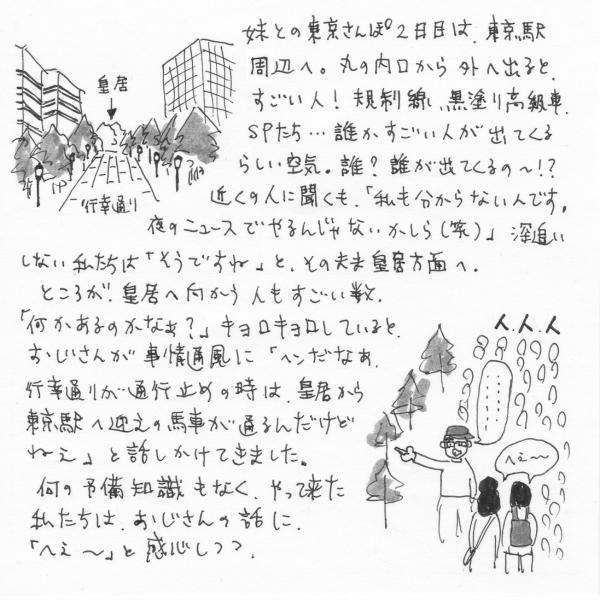 妹との東京さんぽ2日目は、東京駅
周辺へ。丸の内口から外へ出ると、
すごい人！規制線、黒塗り高級車、
SPたち…誰かすごい人が出てくる
らしい空気。誰？誰が出てくるの〜!?
近くの人に聞くも、「私も分からない人です。
夜のニュースでやるんじゃないかしら(笑)」深追い
しない私たちは「そうですね」と、そのまま皇居方面へ。
ところが、皇居へ向かう人もすごい数。
「何かあるのかなぁ？」キョロキョロしていると、
おじさんが事情通風に「ヘンだなぁ、
行幸通りが通行止めの時は、皇居から
東京駅へ迎えの馬車が通るんだけど
ねぇ」と話しかけてきました。
何の予備知識もなく、やって来た
私たちは、おじさんの話に、
「へぇ〜」と感心しつつ、
皇居
行幸通り
人、人、人
へぇ〜